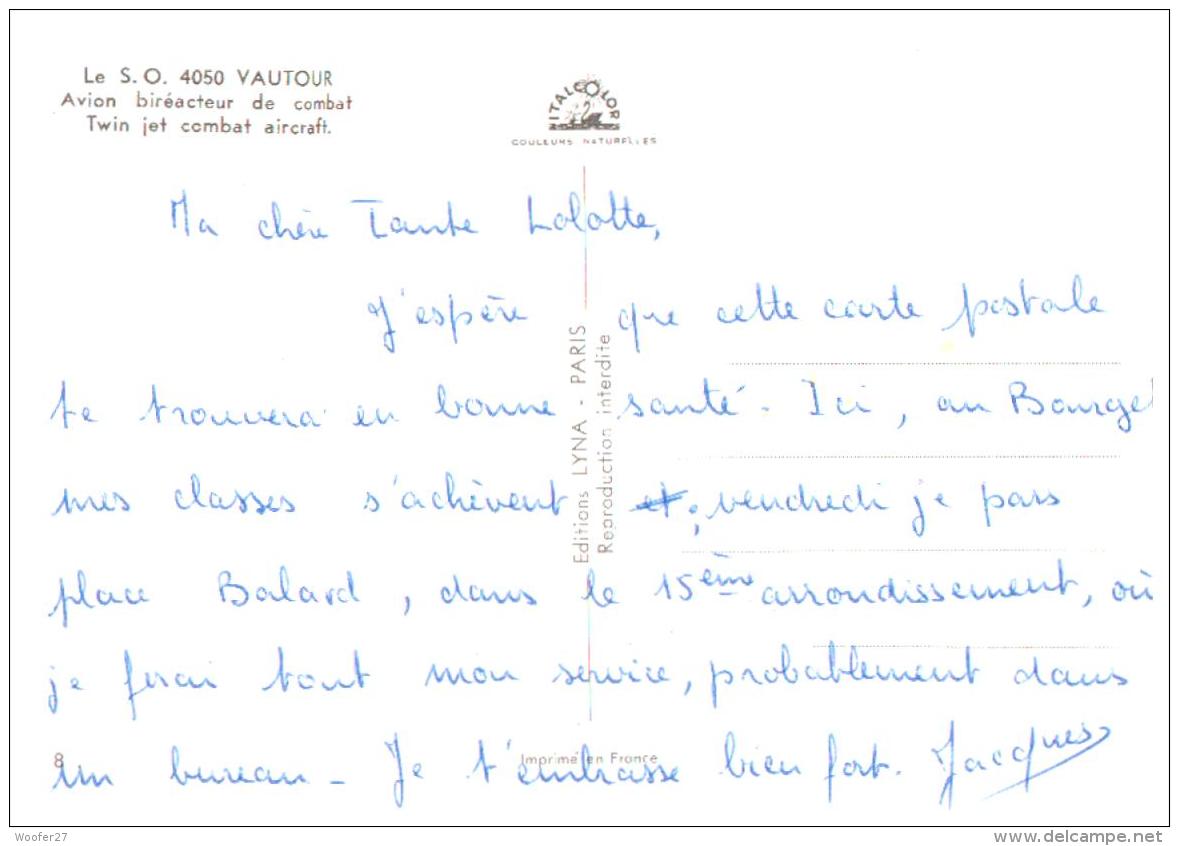 Le S.O. 4050 VAUTOUR
Avion biréacteur de combat
Twin jet combat aircraft.
ITALCOLOR
COULEURS NATURELLES
Ma chère Tante Lolotte,
J'espère que cette carte postale
te trouvera en bonne santé. Ici, au Bourget
mes classes s'achèvent et; vendredi je pars
place Balard, dans le 15ème arrondissement, où
je ferai tout mon service, probablement dans
un bureau - Je t'embrasse bien fort. Jacques
Editions LYNA - PARIS
Reproduction interdite
8
Imprimé en France
Woofer27
www.delcampe.net